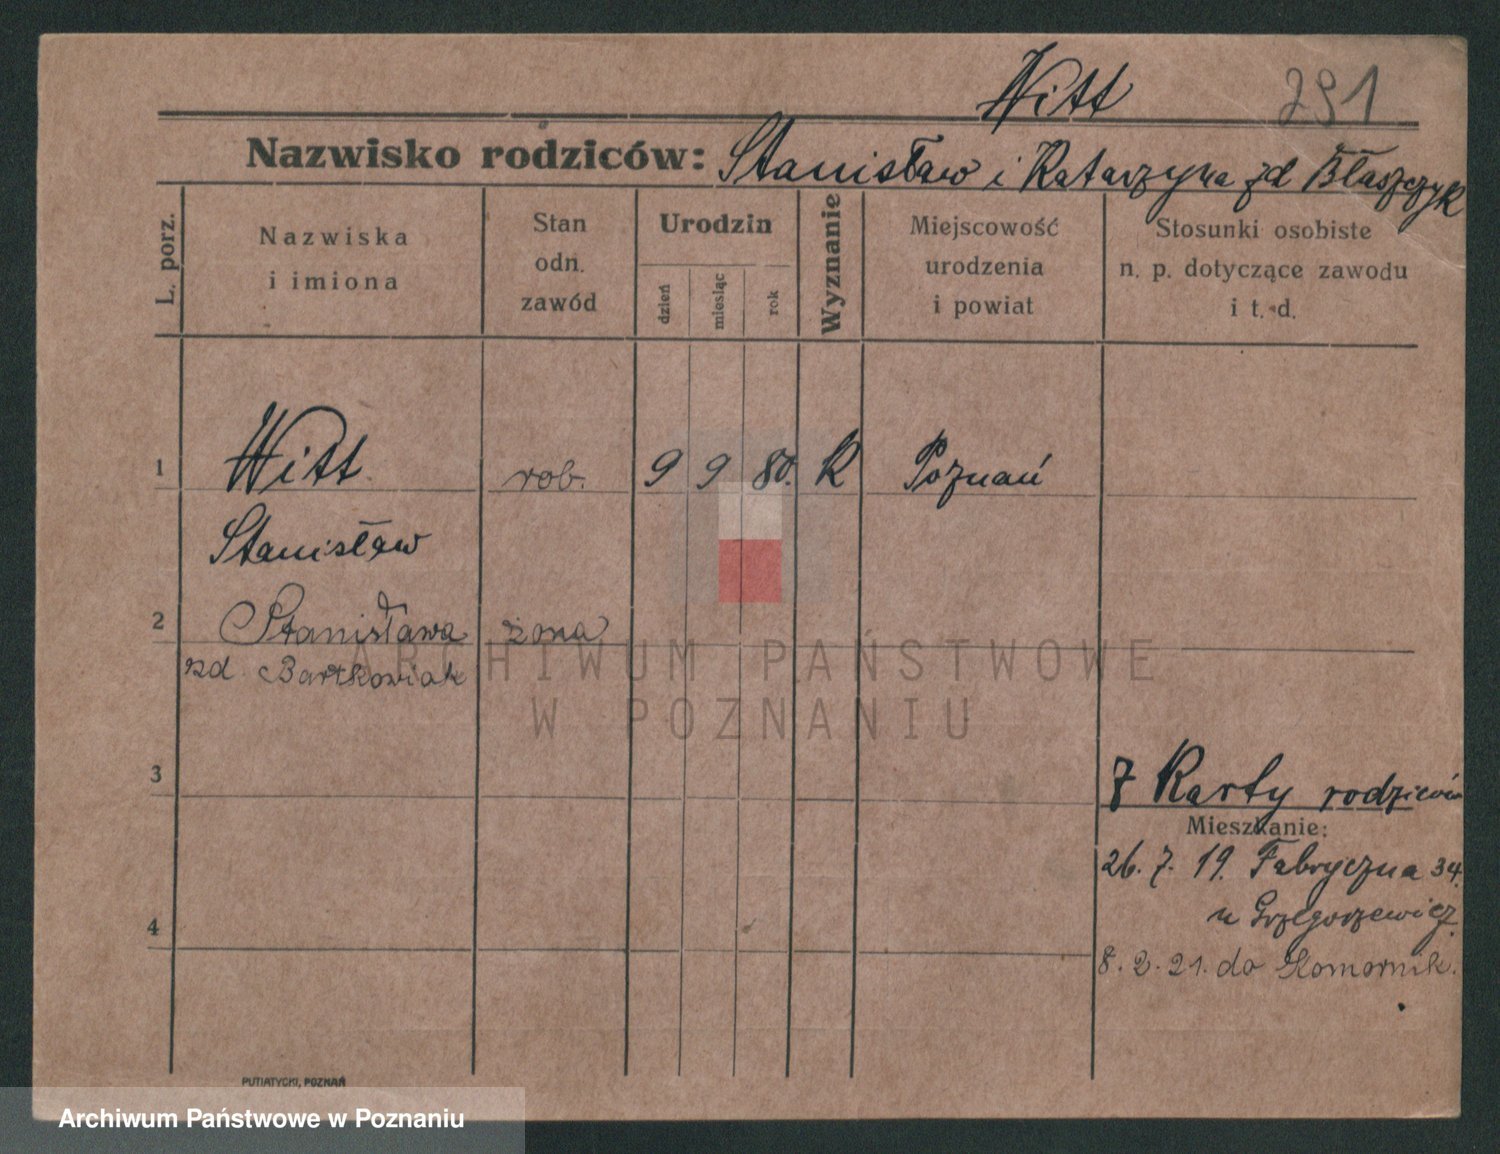 Witt 291
Nazwisko rodziców: Stanisław i Katarzyna zd Błaszczyk
L. porz.
Nazwiska
i imiona
Stan
odn.
zawód
Urodzin
dzień
miesiąc
rok
Wyznanie
Miejscowość
urodzenia
i powiat
Stosunki osobiste
n. p. dotyczące zawodu
i t. d.
1 Witt rob. 9 9 80. K Poznań
Stanisław
2 Stanisława żona
zd. Bartkowiak
ARCHIWUM PAŃSTWOWE
W POZNANIU
3
z Karty rodziców
Mieszkanie:
26. 7. 19. Fabryczna 34.
u Grzegorzewicz.
4
8. 2. 21. do Komornik.
PUTIATYCKI, POZNAŃ
Archiwum Państwowe w Poznaniu